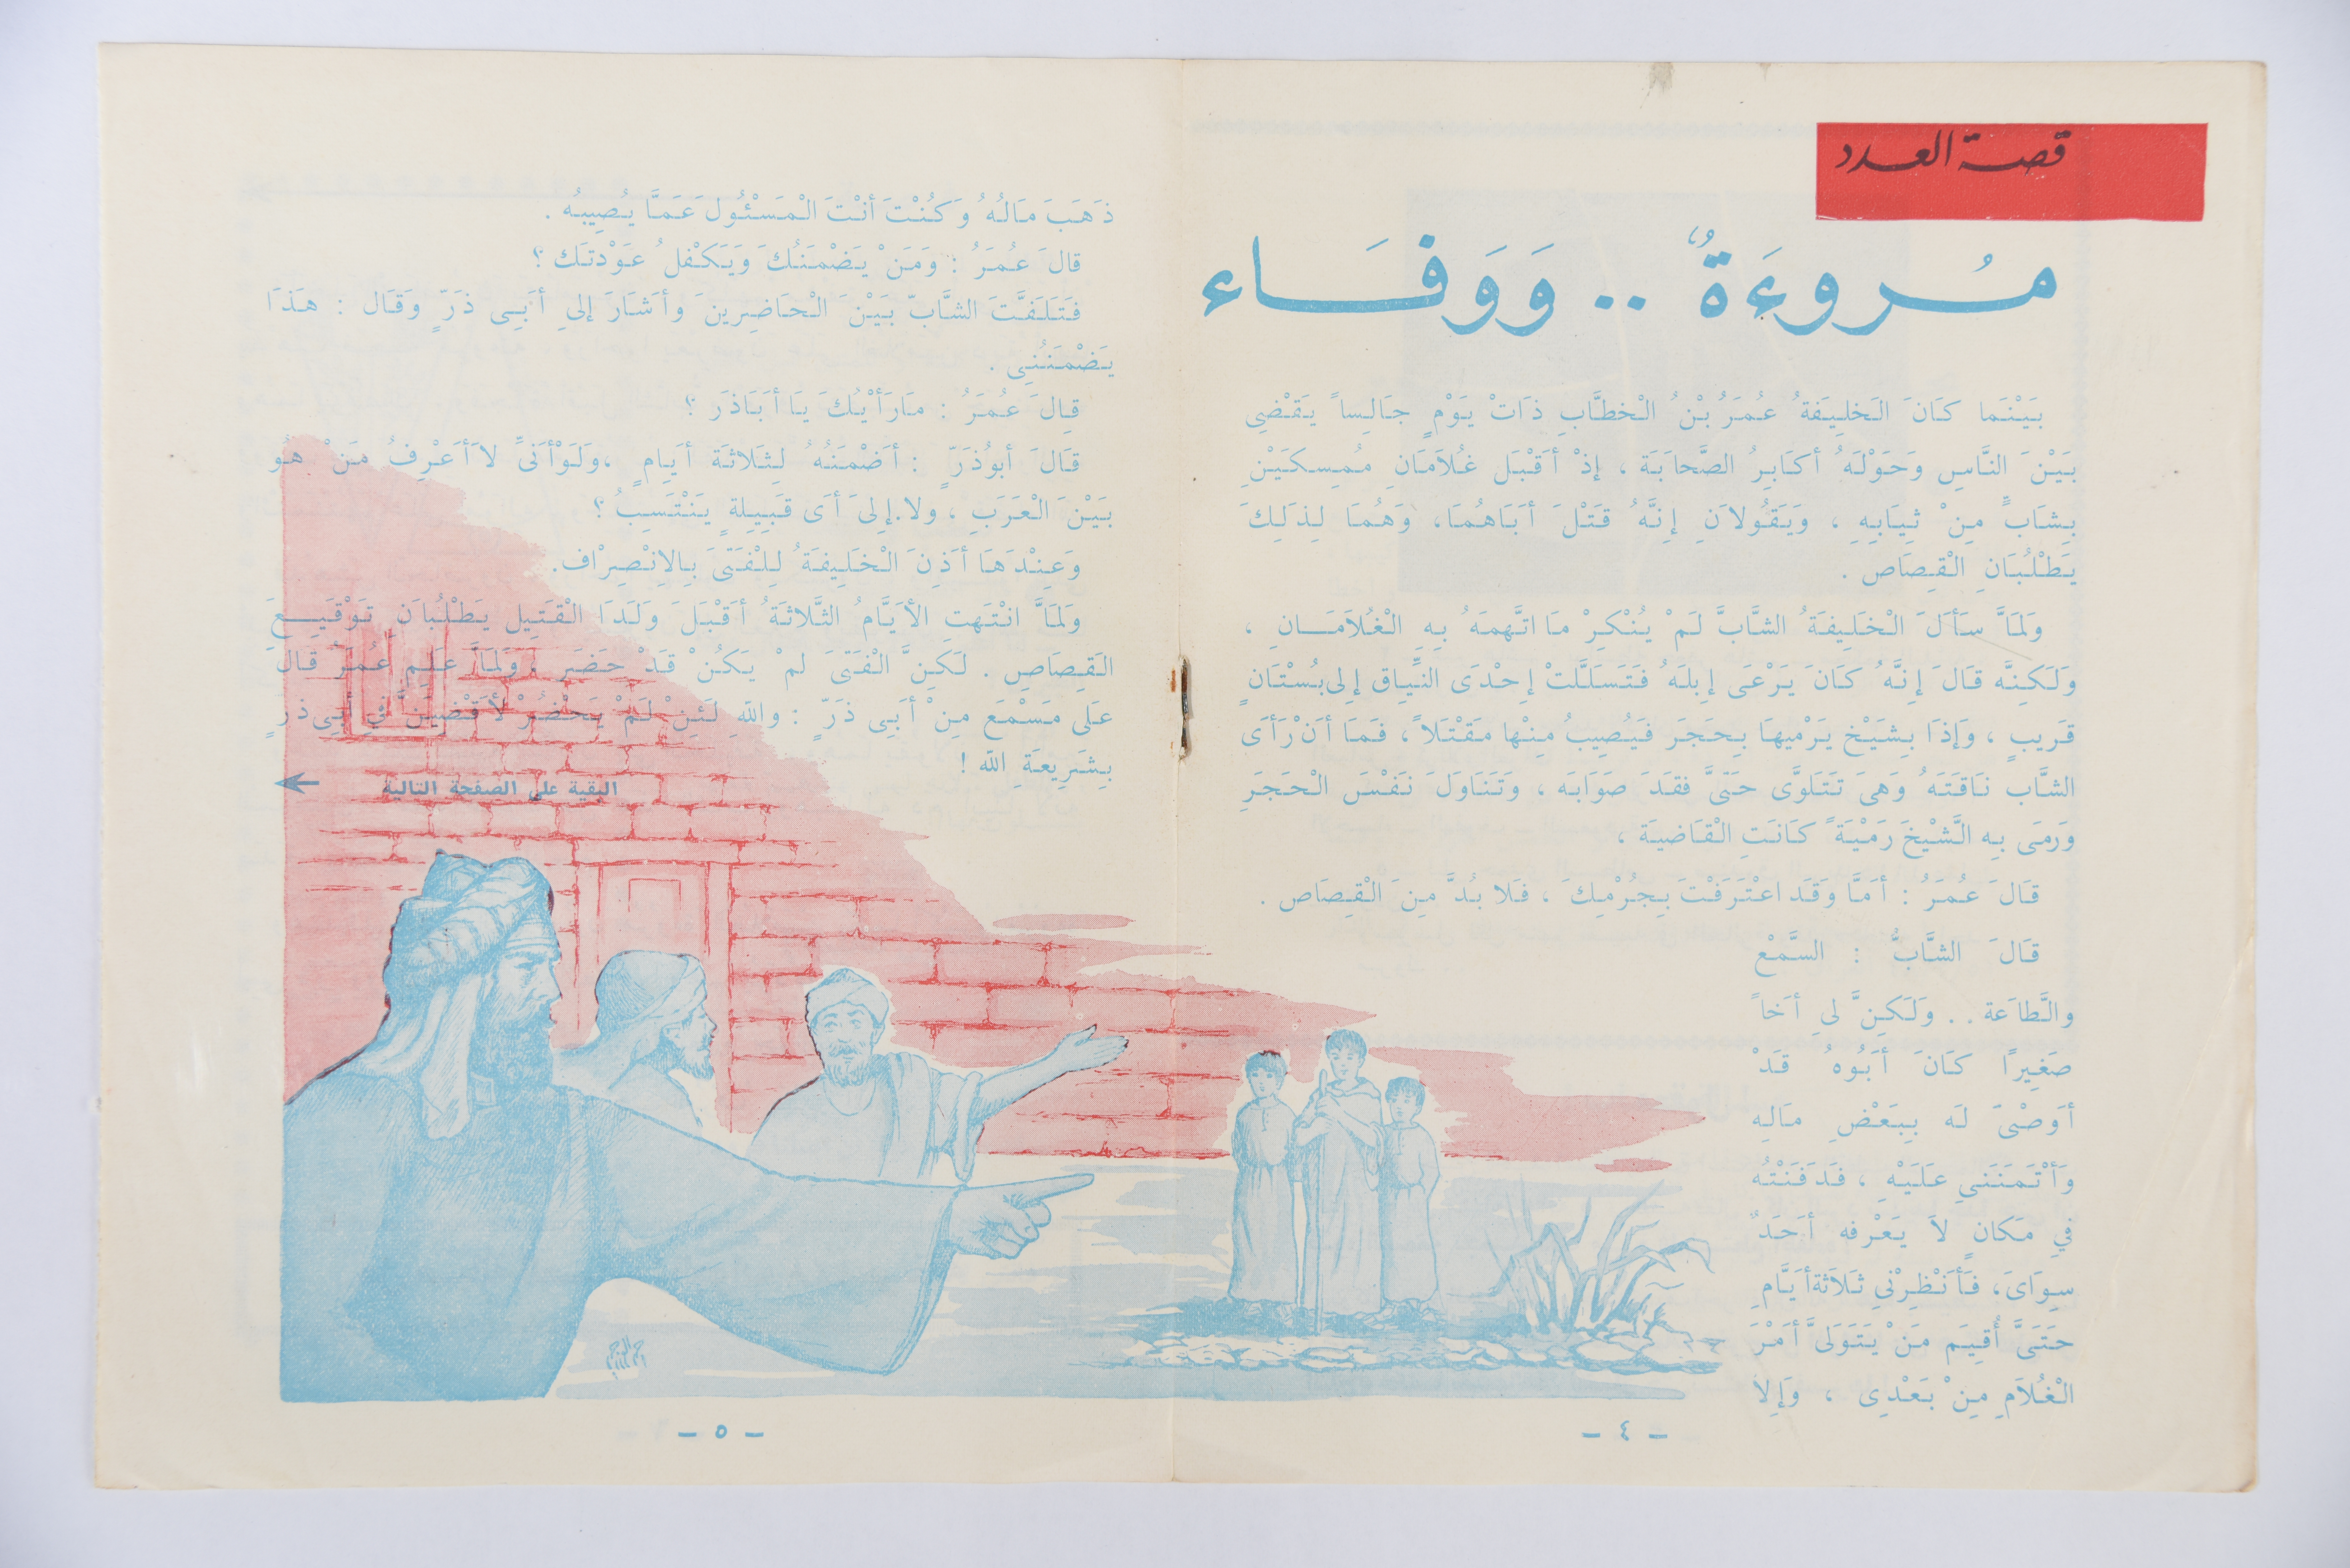 قصة العدد
مُروءَةٌ .. وَوَفَاء
بَيْنَما كَانَ الخَلِيفَةُ عُمَرُ بْنُ الْخطَّابِ ذاتْ يَوْمٍ جَالِساً يَقْضِى
بَيْنَ النَّاسِ وَحَوْلَهُ أكَابِرُ الصَّحابَة ، إذْ أقْبَل غُلاَمَانِ مُمِسكَيْنِ
بِشَابٍّ مِنْ ثِيَابِهِ ، وَيَقُولاَنِ إنَّهُ قَتَلَ أبَاهُمَا، وَهُمَا لِذَلِكَ
يَطْلُبَانِ الْقِصَاص .
وَلَمَّا سَألَ الْخَلِيفَةُ الشَّابَّ لَمْ يُنْكِرْ مَا اتَّهمَهُ بِهِ الْغُلاَمَانِ ،
وَلَكِنَّه قَالَ إنَّهُ كَانَ يَرْعَى إبِلَهُ فَتَسَلَّلتْ إحْدَى النِّيِاق إلى بُسْتَانٍ
قَريبٍ ، وَإذَا بِشَيْخ يَرْميهَا بِحَجَر فَيُصِيبُ مِنْها مَقْتَلاً ، فَمَا أنْ رَأى
الشَّاب نَاقَتَهُ وَهىَ تَتَلَوَّى حَتىَّ فقَدَ صَوَابَه ، وَتَنَاوَلَ نَفْسَ الْحَجَرِ
وَرمَى بِه الشَّيْخَ رَمْيَةً كَانَتِ الْقَاضيَة ،
قَالَ عُمَرُ : أمَّا وَقَد اعْتَرَفْتَ بِجُرْمِكَ ، فَلا بُدَّ مِنَ الْقِصَاص .
قَالَ الشَّابُّ : السَّمْعْ
والطَّاعَة .. وَلَكِنَّ لىِ أخَاً
صَغِيرًا كَانَ أبُوهُ قَدْ
أوَصْىَ لَه بِبَعْضِ مَالِه
وَأتْمَنَنَي عَلَيْهِ ، فَدَفَنْتُه
فيِ مَكَانٍ لاَ يَعْرِفه أحَدٌ
سِوَاىَ، فَأنْظِرْنيِ ثَلاَثَة أيَّامٍ
حَتَىَّ أُقِيَم مَنْ يَتَوَلىَّ أمْرَ
الْغُلاَمِ مِنْ بَعْدِى ، وَإلا
- ٤ -
ذَهَبَ مَالُهُ وَكُنْتَ أنْتَ الْمَسْئُولَ عَمَّا يُصِيبُه .
قالَ عُمَرُ : وَمَنْ يَضْمَنُكَ وَيَكْفلُ عَوْدتَك ؟
فَتَلَفَّتَ الشَّابّ بَيْنَ الْحَاضِرينَ وأشَارَ إلىِ أبَىِ ذَرّ ٍ وَقَال : هَذَا
يَضْمَنُنِى .
قِالَ عُمَرُ : مَارَأْيُكَ يَا أبَاذَر ؟
قَالَ أبوُذَرّ ٍ : أضْمَنُهُ لِثَلاثَة أيَامٍ ،وَلَوْأنىَّ لاَأعْرِفُ مَنْ هُوُ
بَيْنَ الْعَرَبِ ، ولا.إلىَ أىَ قَبِيلةٍ يَنْتَسِبُ ؟
وَعِنْدَهَا أذِنَ الْخَلِيفَةُ لِلْفَتىَ بِالاِنْصِرْاف.
وَلَمَّا انْتَهتِ الأيَّامُ الثَّلاثَةُ أقْبَلَ وَلَدَا الْقَتِيل يَطْلُباَنِ تَوْقِيعَ
القِصَاصِ . لَكِنَّ الْفَتىَ لمْ يَكُنْ قَدْ حَضَر ، وَلَمَّا عَلِم عُمَرُ قَالَ
عَلى مَسْمَع مِنْ أبَىِ ذَرّ ٍ : واللهِ لَئِنْ لَمْ يَحْضُرْ لأقْضِيَنَّ فيِ أبِى ذَرٍ
بِشَرِيعَةِ الله !
البقية على الصفحة التالية
- ٥ -